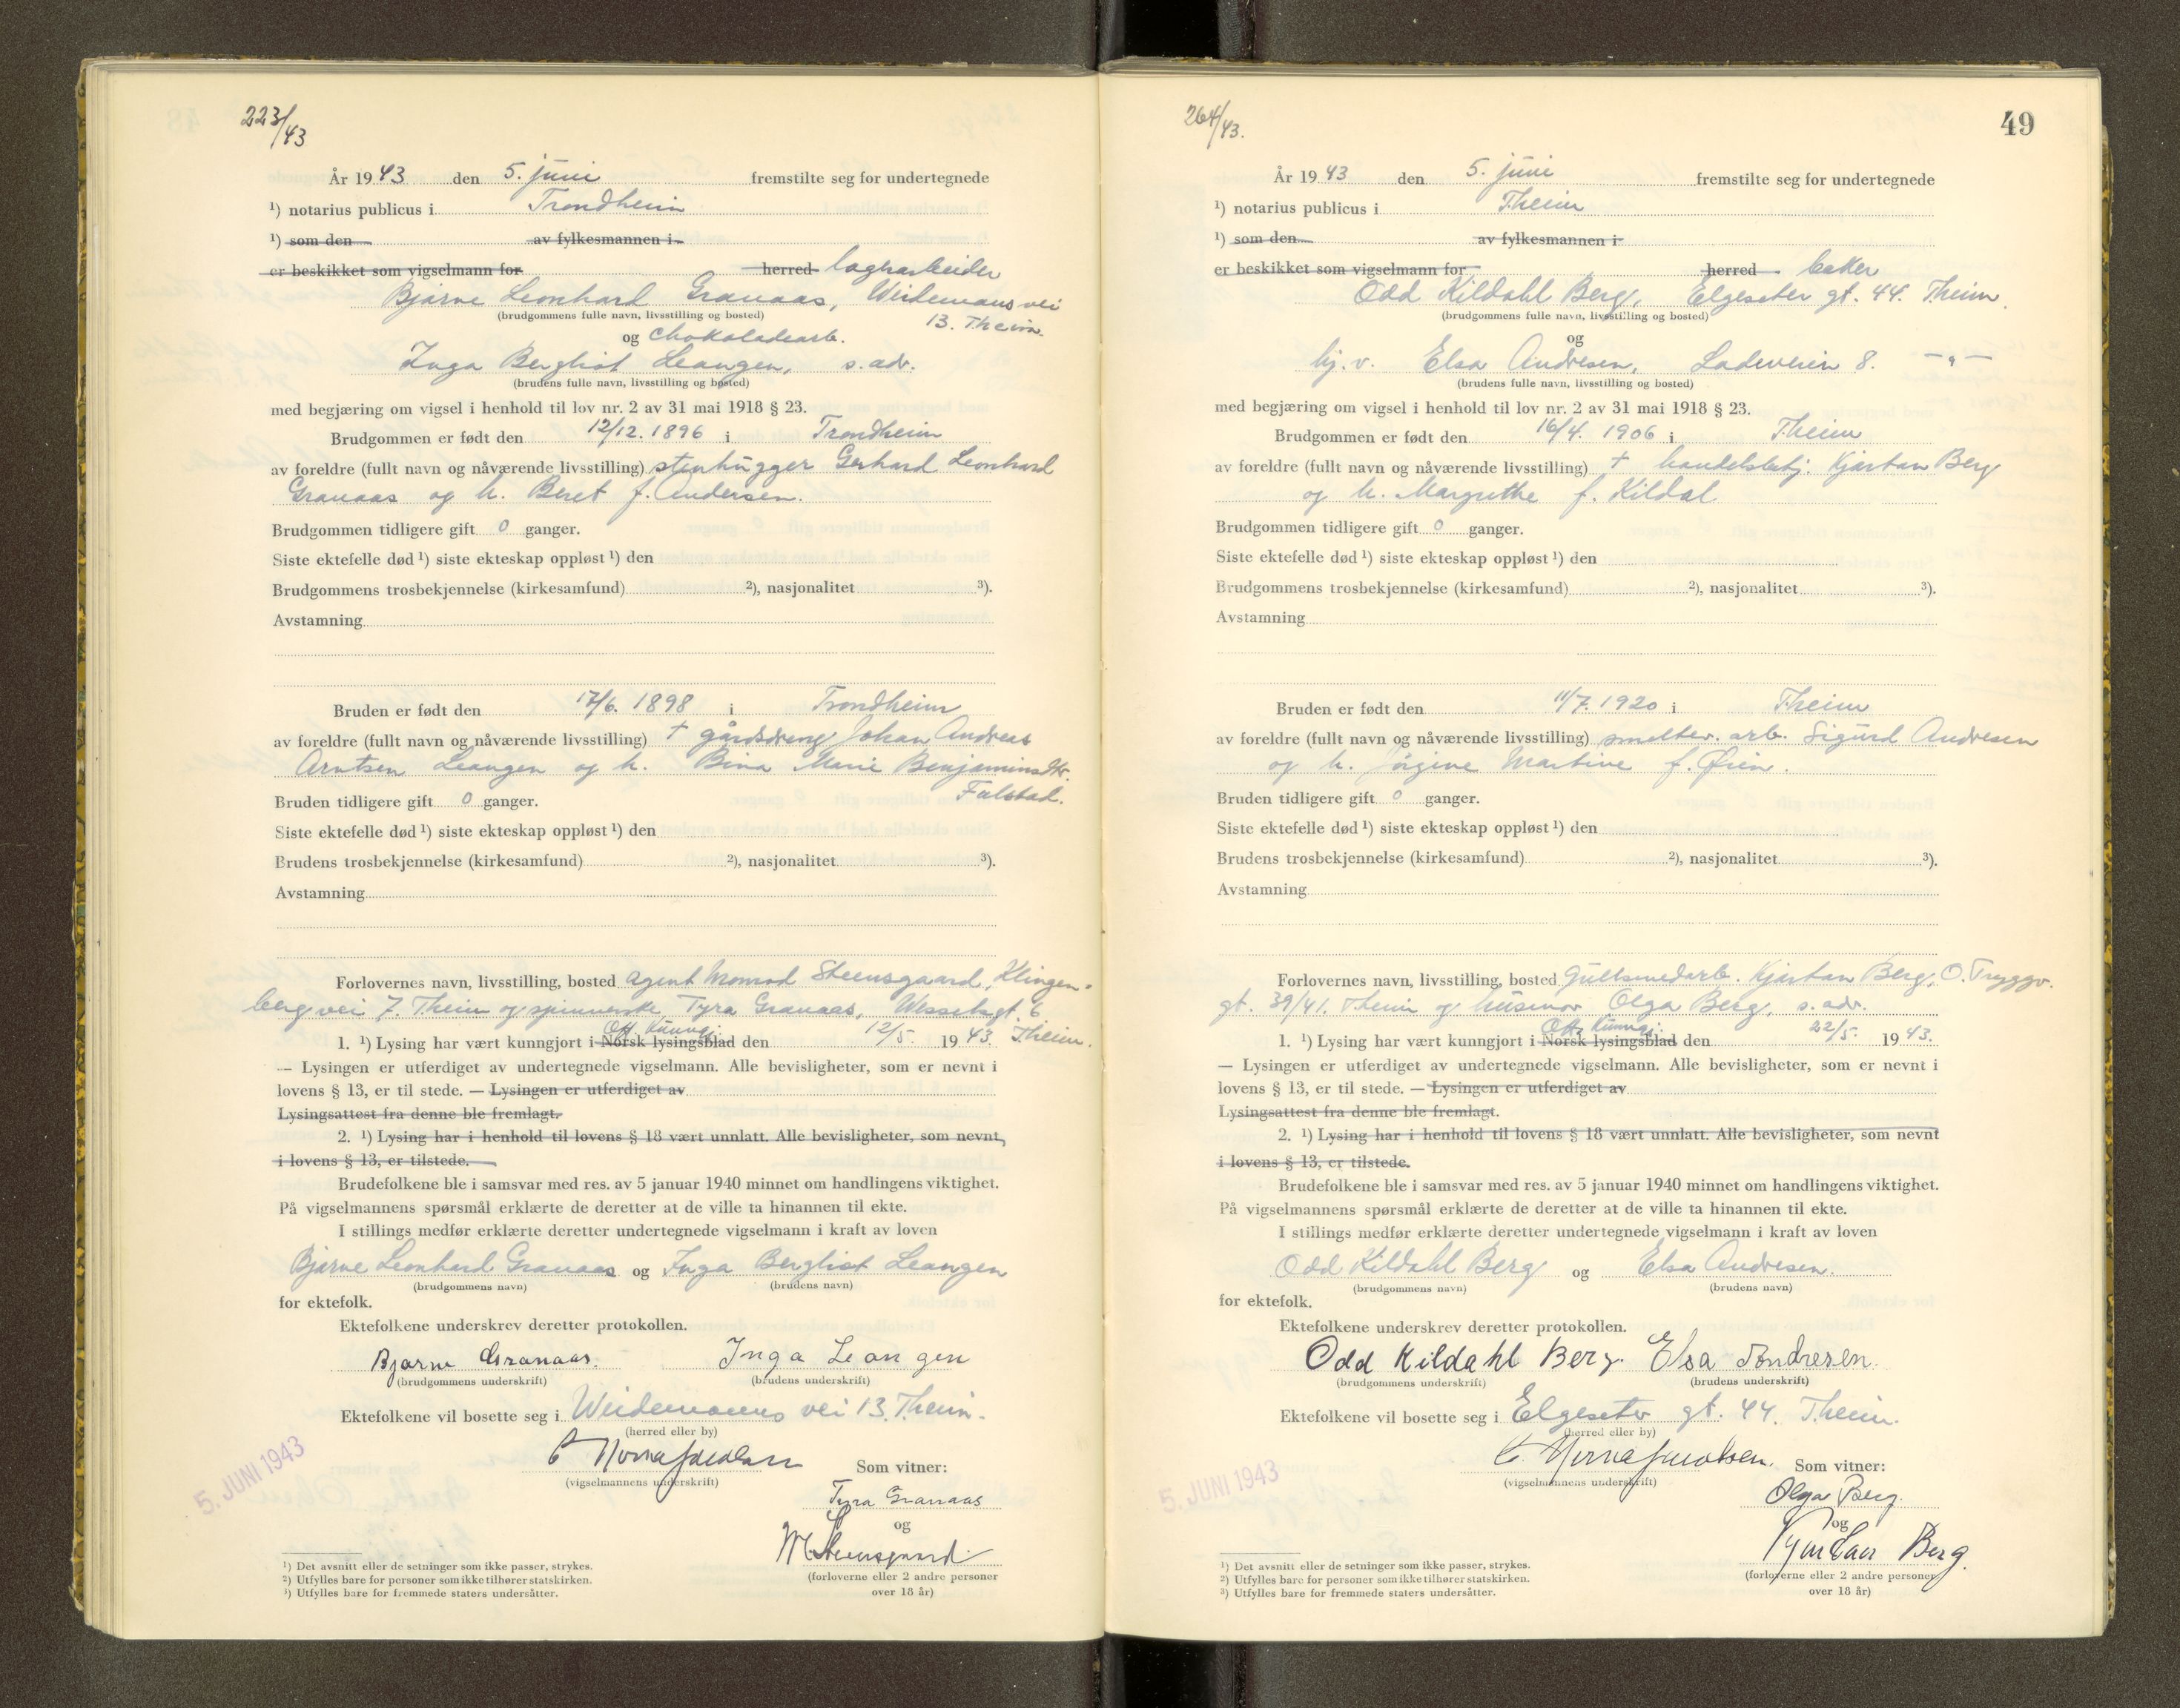 223/43
År 1943 den 5. juni fremstilte seg for undertegnede
¹) notarius publicus i Trondheim
¹) som den av fylkesmannen i
er beskikket som vigselmann for herred lagerarbeider
Bjarne Leonhard Granaas, Weidemans vei
(brudgommens fulle navn, livsstilling og bosted) 13. Theim
og chokoladearb.
Inga Bergliot Leangen, s. adr.
(brudens fulle navn, livsstilling og bosted)
med begjæring om vigsel i henhold til lov nr. 2 av 31 mai 1918 § 23.
Brudgommen er født den 12/12. 1896 i Trondheim
av foreldre (fullt navn og nåværende livsstilling) stenhugger Gerhard Leonhard
Granaas og h. Beret f. Andersen.
Brudgommen tidligere gift 0 ganger.
Siste ektefelle død ¹) siste ekteskap oppløst ¹) den
Brudgommens trosbekjennelse (kirkesamfund) ²), nasjonalitet ³).
Avstamning
Bruden er født den 17/6. 1898 i Trondheim
av foreldre (fullt navn og nåværende livsstilling) † gårdsdreng Johan Andreas
Arntsen Leangen og h. Bina Marie Benjaminsdtr.
Falstad.
Bruden tidligere gift 0 ganger.
Siste ektefelle død ¹) siste ekteskap oppløst ¹) den
Brudens trosbekjennelse (kirkesamfund) ²), nasjonalitet ³).
Avstamning
Forlovernes navn, livsstilling, bosted agent Monrad Steensgaard, Klingen-
berg vei 7. Theim og spinnerske Tyra Granaas, Wesselsgt. 6
Off. Kunngj.
1. ¹) Lysing har vært kunngjort i Norsk lysingsblad den 12/5. 1943. Theim.
— Lysingen er utferdiget av undertegnede vigselmann. Alle bevisligheter, som er nevnt i
lovens § 13, er til stede. — Lysingen er utferdiget av
Lysingsattest fra denne ble fremlagt.
2. ¹) Lysing har i henhold til lovens § 18 vært unnlatt. Alle bevisligheter, som nevnt
i lovens § 13, er tilstede.
Brudefolkene ble i samsvar med res. av 5 januar 1940 minnet om handlingens viktighet.
På vigselmannens spørsmål erklærte de deretter at de ville ta hinannen til ekte.
I stillings medfør erklærte deretter undertegnede vigselmann i kraft av loven
Bjarne Leonhard Granaas og Inga Bergliot Leangen
(brudgommens navn) (brudens navn)
for ektefolk.
Ektefolkene underskrev deretter protokollen.
Bjarne Granaas. Inga Leangen
(brudgommens underskrift) (brudens underskrift)
Ektefolkene vil bosette seg i Weidemanns vei 13. Theim.
(herred eller by)
(vigselmannens underskrift) Som vitner:
5. JUNI 1943
Tyra Granaas
og
M. Steensgaard
(forloverne eller 2 andre personer
over 18 år)
¹) Det avsnitt eller de setninger som ikke passer, strykes.
²) Utfylles bare for personer som ikke tilhører statskirken.
³) Utfylles bare for fremmede staters undersåtter.
264/43.
49
År 1943 den 5. juni fremstilte seg for undertegnede
¹) notarius publicus i Theim
¹) som den av fylkesmannen i
er beskikket som vigselmann for herred baker
Odd Kildahl Berg, Elgeseter gt. 44. Theim.
(brudgommens fulle navn, livsstilling og bosted)
og
hj. v. Elsa Andresen, Ladeveien 8. — " —
(brudens fulle navn, livsstilling og bosted)
med begjæring om vigsel i henhold til lov nr. 2 av 31 mai 1918 § 23.
Brudgommen er født den 16/4. 1906 i Theim
av foreldre (fullt navn og nåværende livsstilling) † handelsbetj. Kjartan Berg
og h. Margrethe f. Kildal
Brudgommen tidligere gift 0 ganger.
Siste ektefelle død ¹) siste ekteskap oppløst ¹) den
Brudgommens trosbekjennelse (kirkesamfund) ²), nasjonalitet ³).
Avstamning
Bruden er født den 11/7. 1920 i Theim
av foreldre (fullt navn og nåværende livsstilling) smeltev. arb. Sigurd Andresen
og h. Jørgine Martine f. Øien.
Bruden tidligere gift 0 ganger.
Siste ektefelle død ¹) siste ekteskap oppløst ¹) den
Brudens trosbekjennelse (kirkesamfund) ²), nasjonalitet ³).
Avstamning
Forlovernes navn, livsstilling, bosted Gullsmedarb. Kjartan Berg, O. Tryggv.
gt. 39/41. Theim og husmor Olga Berg, s. adr.
Off. Kunngj.
1. ¹) Lysing har vært kunngjort i Norsk lysingsblad den 22/5. 1943.
— Lysingen er utferdiget av undertegnede vigselmann. Alle bevisligheter, som er nevnt i
lovens § 13, er til stede. — Lysingen er utferdiget av
Lysingsattest fra denne ble fremlagt.
2. ¹) Lysing har i henhold til lovens § 18 vært unnlatt. Alle bevisligheter, som nevnt
i lovens § 13, er tilstede.
Brudefolkene ble i samsvar med res. av 5 januar 1940 minnet om handlingens viktighet.
På vigselmannens spørsmål erklærte de deretter at de ville ta hinannen til ekte.
I stillings medfør erklærte deretter undertegnede vigselmann i kraft av loven
Odd Kildahl Berg og Elsa Andresen.
(brudgommens navn) (brudens navn)
for ektefolk.
Ektefolkene underskrev deretter protokollen.
Odd Kildahl Berg. Elsa Andresen.
(brudgommens underskrift) (brudens underskrift)
Ektefolkene vil bosette seg i Elgeseter gt. 44. Theim.
(herred eller by)
(vigselmannens underskrift) Som vitner:
5. JUNI 1943
Olga Berg.
og
Kjartan Berg.
(forloverne eller 2 andre personer
over 18 år)
¹) Det avsnitt eller de setninger som ikke passer, strykes.
²) Utfylles bare for personer som ikke tilhører statskirken.
³) Utfylles bare for fremmede staters undersåtter.